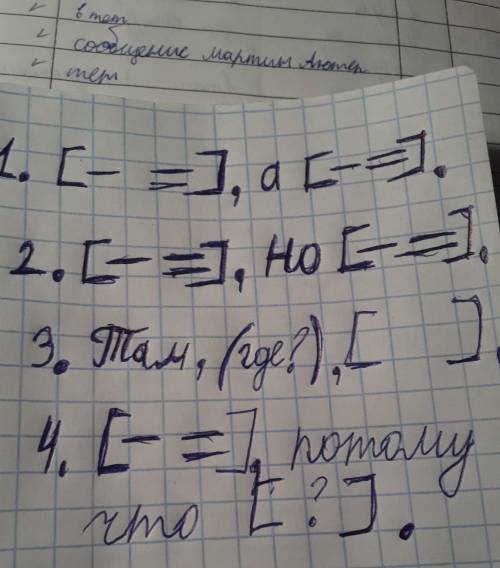 в тет
сообщение мартин Лютер
тет
1. [— =], а [— =].
2. [— =], но [— =].
3. Там, (где?), [ ].
4. [— =], потому
что [ ? ].